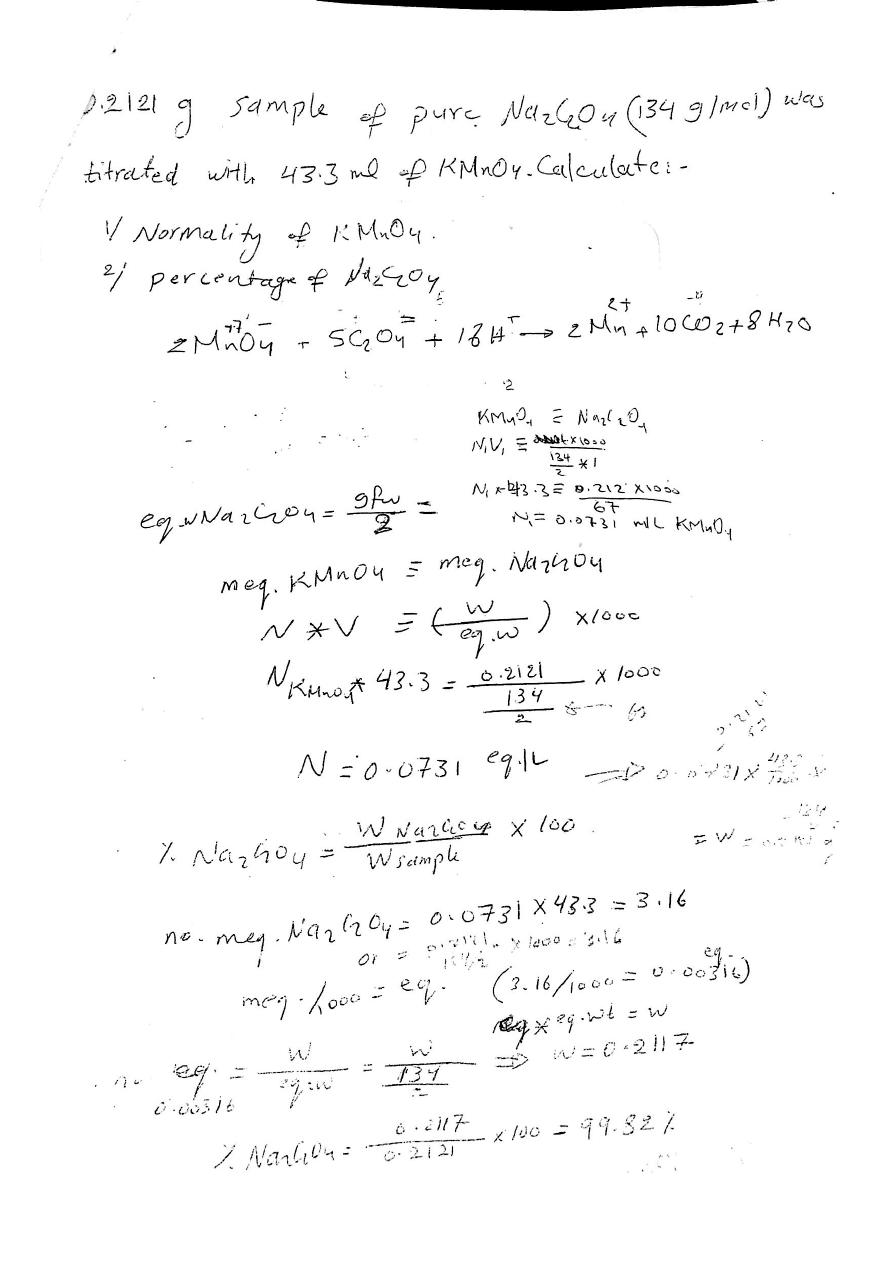 0.2121 g sample of pure Na2C2O4 (134 g/mol) was
titrated with 43.3 ml of KMnO4. Calculate:-
1/ Normality of KMnO4.
2/ percentage of Na2C2O4
2 MnO4⁻ + 5C2O4⁼ + 16 H⁺ → 2 Mn²⁺ + 10 CO2 + 8 H2O
KMnO4 ≡ Na2C2O4
N1V1 ≡ x1000 / (134/2 * 1)
N1 x 43.3 ≡ 0.212 x1000 / 67
N = 0.0731 KMnO4
eq.w Na2C2O4 = gfw / 2 =
meq. KMnO4 ≡ meq. Na2C2O4
N * V ≡ (W / eq.w) x1000
N KMnO4 * 43.3 = 0.2121 / (134/2) x 1000
N = 0.0731 eq/L
% Na2C2O4 = W Na2C2O4 / W sample x 100
= W =
no. meq. Na2C2O4 = 0.0731 x 43.3 = 3.16
or = x 1000 = 3.16
meq. /1000 = eq. (3.16/1000 = 0.00316) eq.
eq * eq.wt = w
no eq. = W / eq.w = W / (134/2) ⇒ W = 0.2117
0.00316
% Na2C2O4 = 0.2117 / 0.2121 x 100 = 99.82 %